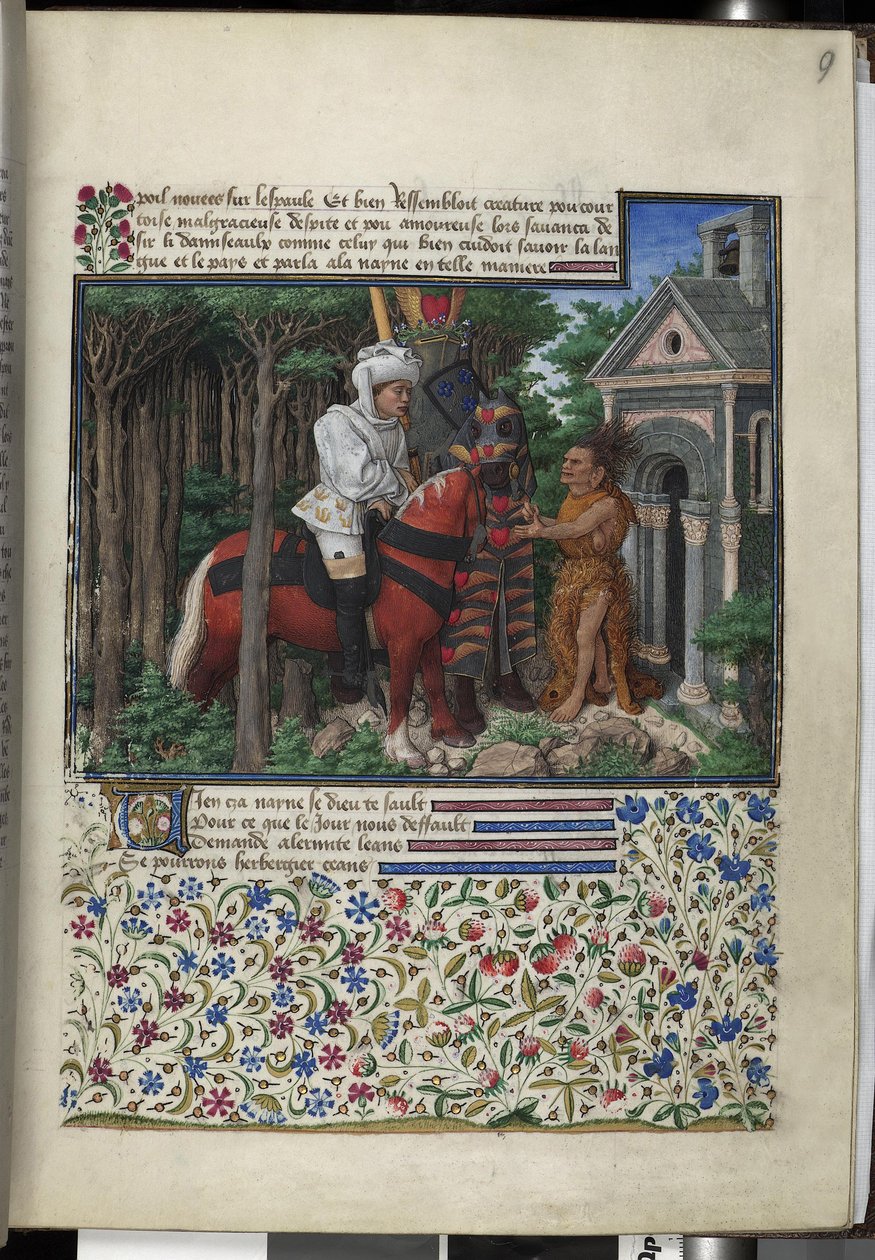 9
poil nouees sur lespaule Et bien Ressembloit creature pou cour
toise malgracieuse despite et pou amoureuse lors savanca de
sir li damiseaulx comme celuy qui bien cuidoit savoir la lan
gue et le pays et parla ala nayne en telle maniere
Vien cza nayne se dieu te sault
Pour ce que le Jour nous deffault
Demande alermite leans
Se pourrons herbergier ceans